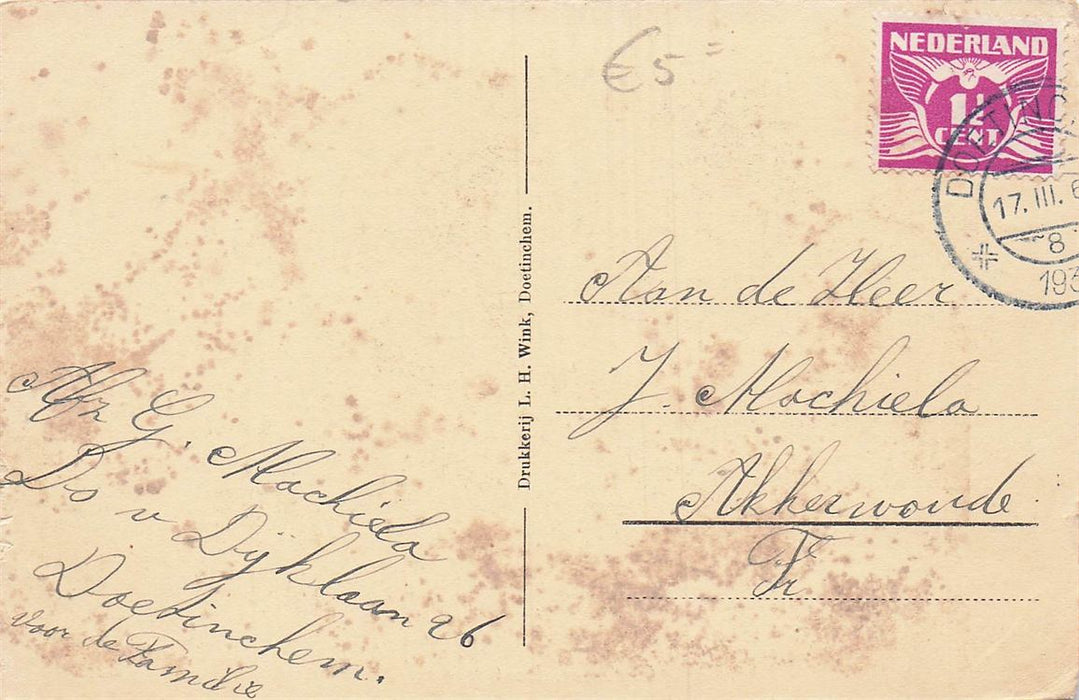 € 5 =
NEDERLAND
1½
CENT
DOETINC
17.III.
8
193
Drukkerij L. H. Wink, Doetinchem.
Aan de Heer
J. Machiela
Akkerwoude
Fr
Afz G. Machiela
Ds v Dijklaan 26
Doetinchem.
voor de Familie